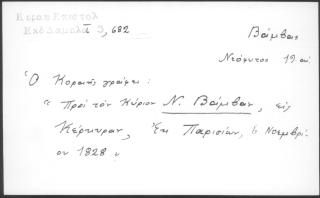 Κοραή Επιστολ
Εκδ Δαμαλά 3, 682
Βάμβας
Νεόφυτος 19 αἰ
Ὁ Κοραῆς γράφει:
"Πρὸς τὸν Κύριον Ν. Βάμβαν, εἰς
Κέρκυραν, Ἐκ Παρισίων, 6 Νοεμβρί-
ου 1828".